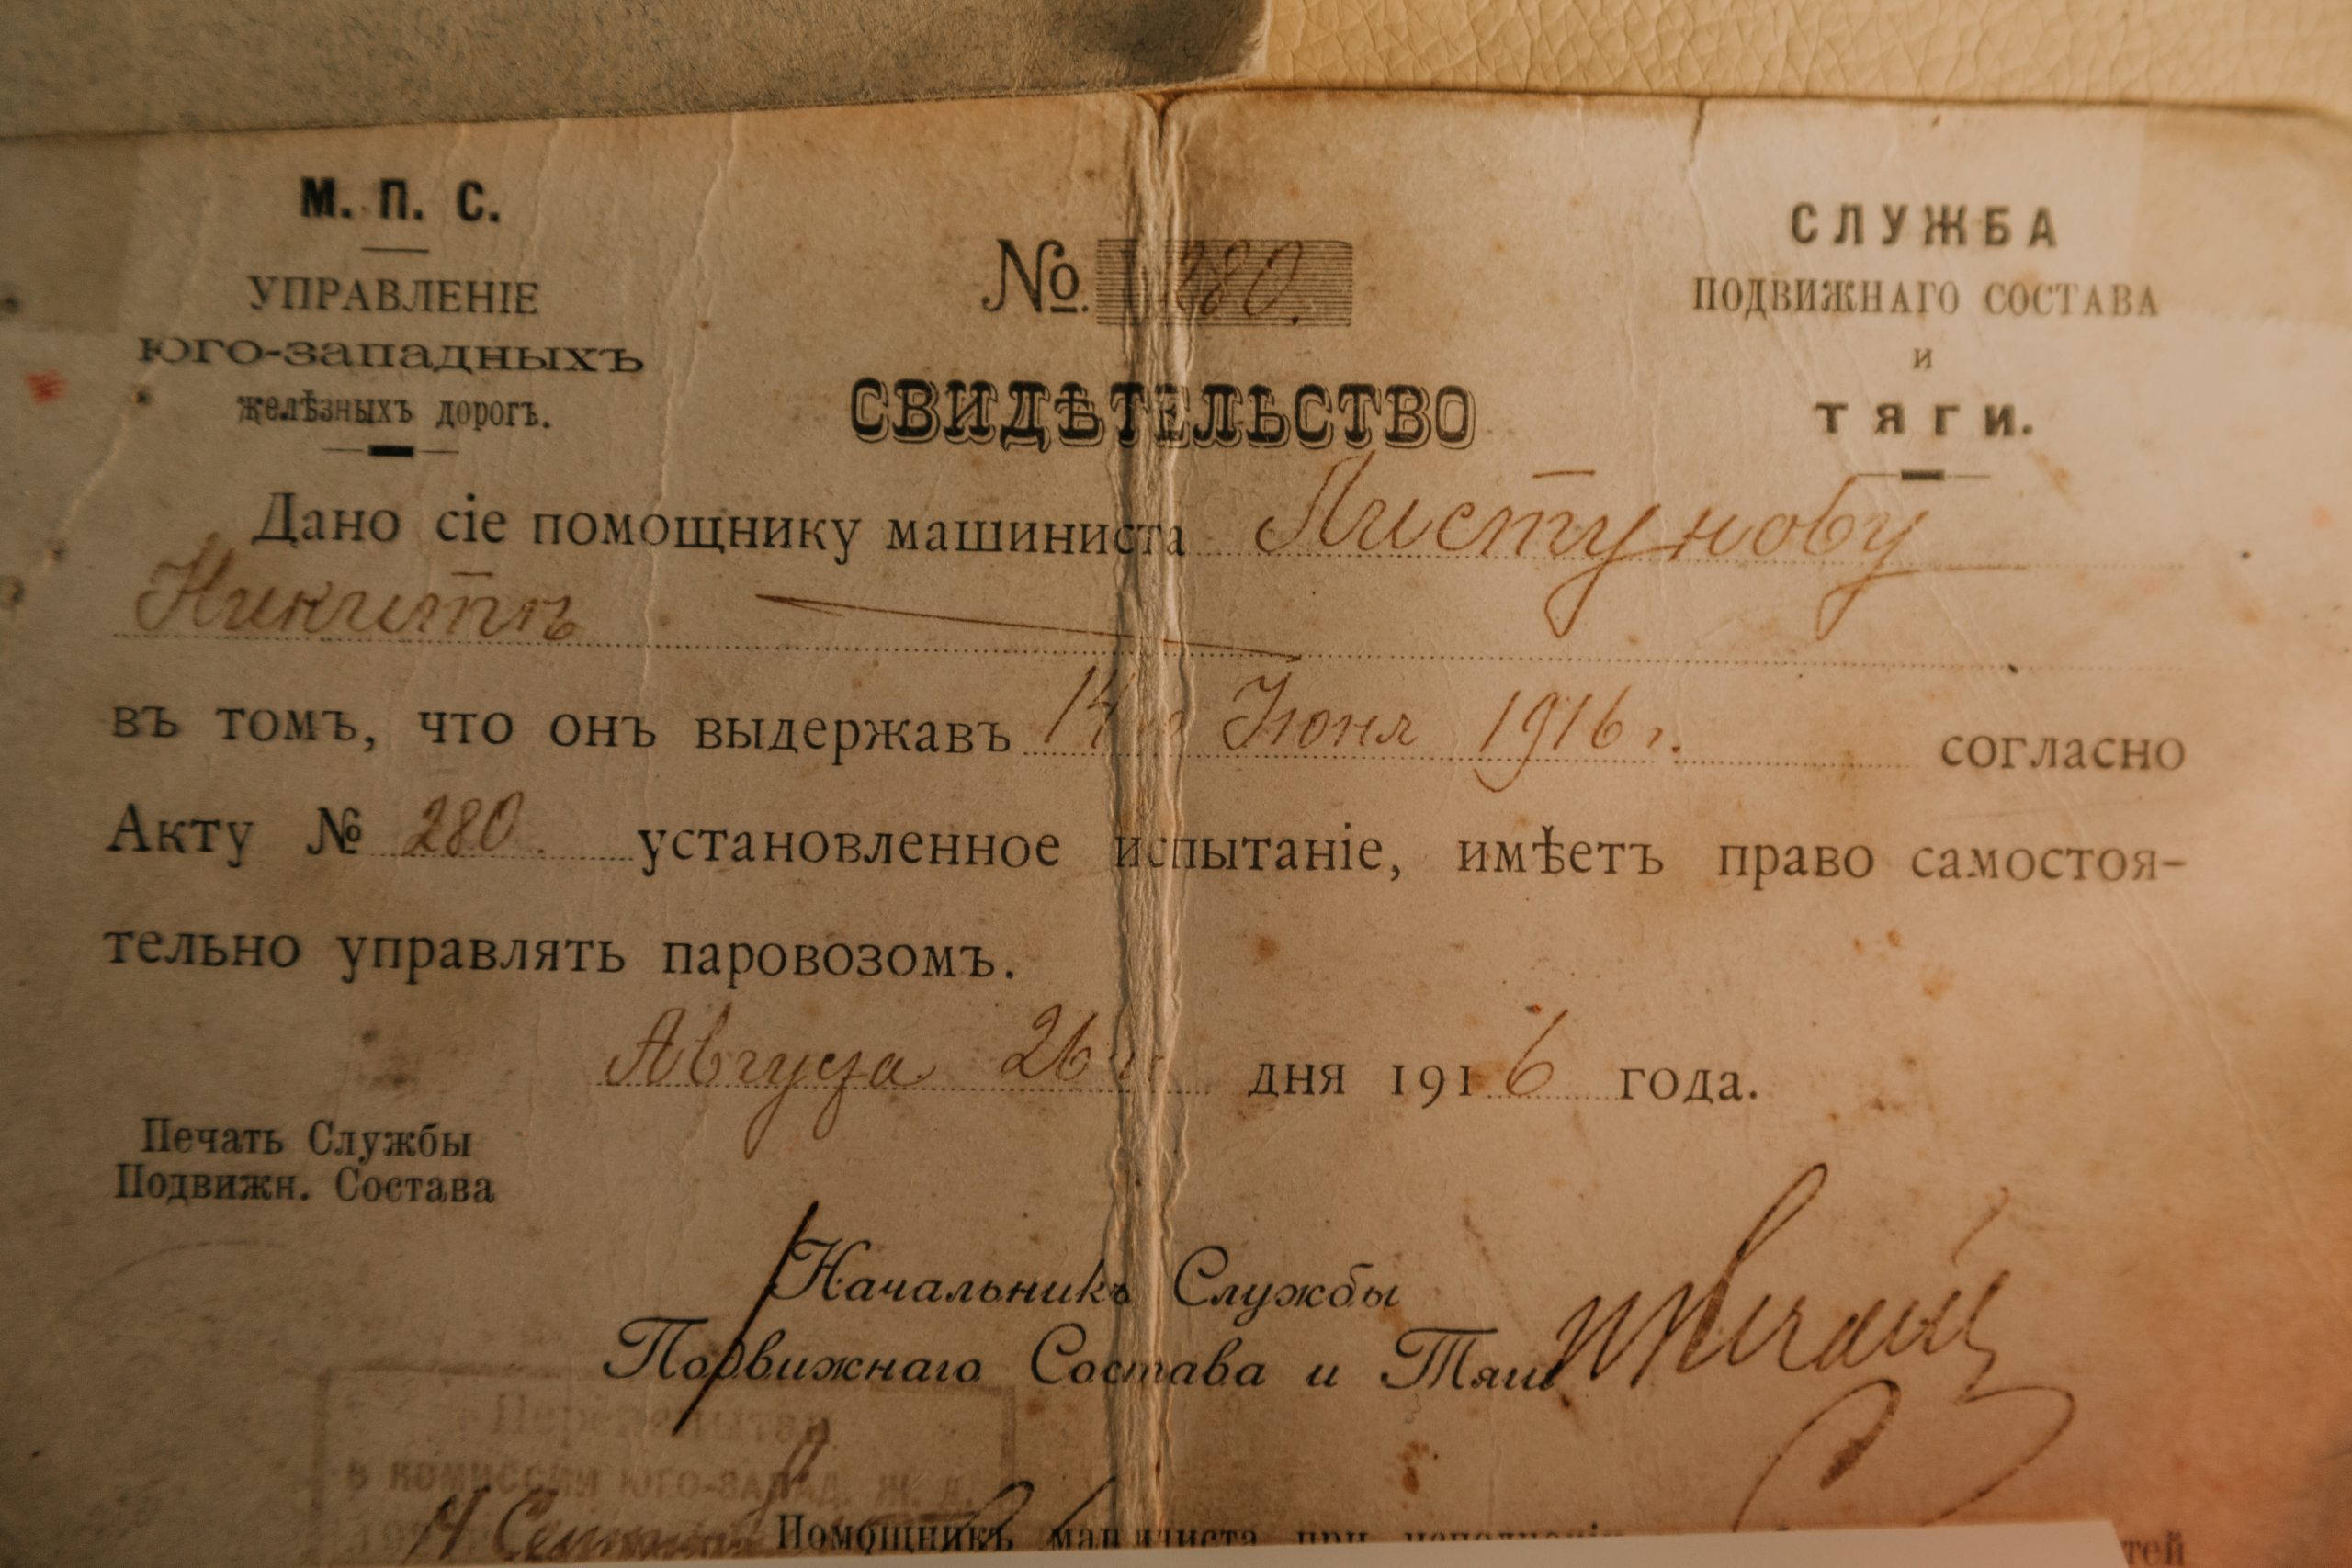 М. П. С.
УПРАВЛЕНІЕ
ЮГО-ЗАПАДНЫХЪ
желѣзныхъ дорогъ.
№. 280.
СВИДѢТЕЛЬСТВО
СЛУЖБА
ПОДВИЖНАГО СОСТАВА
и
ТЯГИ.
Дано сіе помощнику машиниста Листунову
Никитѣ
въ томъ, что онъ выдержавъ 14 Іюня 1916 г. согласно
Акту № 280. установленное испытаніе, имѣетъ право самостоя-
тельно управлять паровозомъ.
Августа 26 дня 1916 года.
Печать Службы
Подвижн. Состава
Начальникъ Службы
Подвижнаго Состава и Тяги
в комиссии Юго-Запад. ж. д.
Помощникъ машиниста при